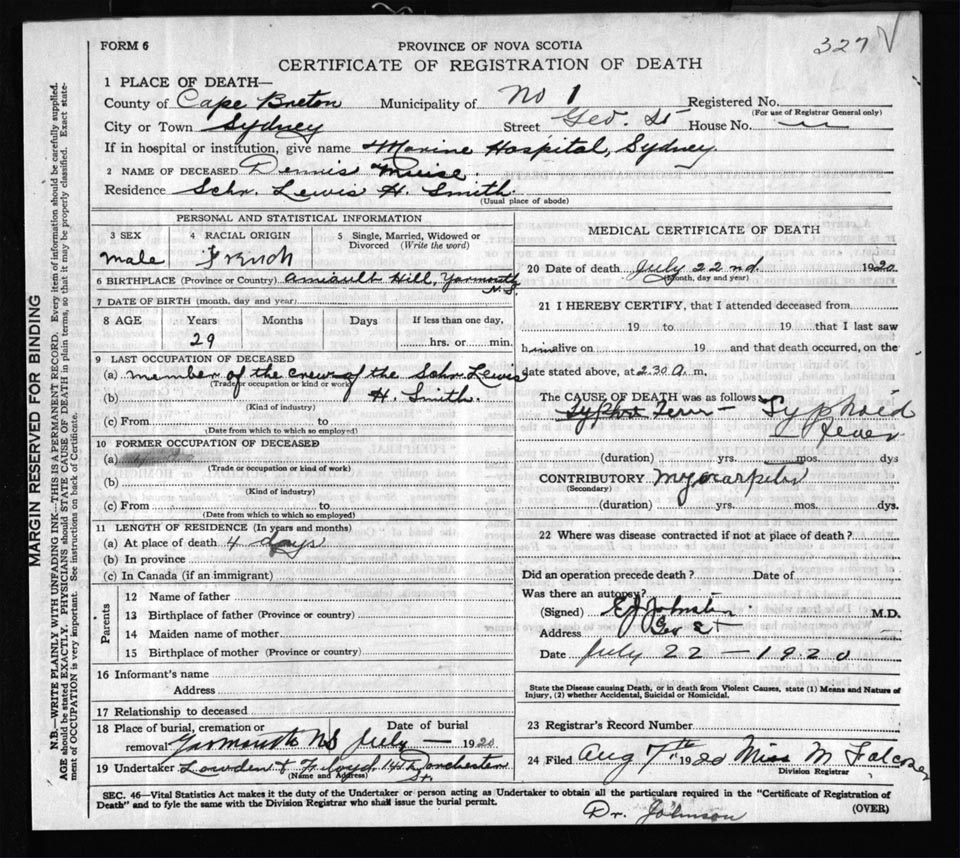 327 V
FORM 6
PROVINCE OF NOVA SCOTIA
CERTIFICATE OF REGISTRATION OF DEATH
1 PLACE OF DEATH—
County of Cape Breton Municipality of No 1 Registered No.
(For use of Registrar General only)
City or Town Sydney Street Geo. St House No.
If in hospital or institution, give name Marine Hospital, Sydney.
2 NAME OF DECEASED Dennis Muise.
Residence Schr. Lewis H. Smith.
(Usual place of abode)
PERSONAL AND STATISTICAL INFORMATION
3 SEX
male
4 RACIAL ORIGIN
French
5 Single, Married, Widowed or Divorced (Write the word)
6 BIRTHPLACE (Province or Country) Amiault Hill, Yarmouth
N.S.
7 DATE OF BIRTH (month, day and year)
8 AGE Years Months Days If less than one day,
29 hrs. or min.
9 LAST OCCUPATION OF DECEASED
(a) member of the crew of the Schr. Lewis
(Trade or occupation or kind of work)
(b) H. Smith.
(Kind of industry)
(c) From to
(Date from which to which so employed)
10 FORMER OCCUPATION OF DECEASED
(a)
(Trade or occupation or kind of work)
(b)
(Kind of industry)
(c) From to
(Date from which to which so employed)
11 LENGTH OF RESIDENCE (In years and months)
(a) At place of death 4 days
(b) In province
(c) In Canada (if an immigrant)
Parents
12 Name of father
13 Birthplace of father (Province or country)
14 Maiden name of mother
15 Birthplace of mother (Province or country)
16 Informant's name
Address
17 Relationship to deceased
18 Place of burial, cremation or Date of burial
removal Yarmouth NS July — 1920
19 Undertaker Lowden & Floyd
(Name and Address) St.
MEDICAL CERTIFICATE OF DEATH
20 Date of death July 22nd. 1920
(Month, day and year)
21 I HEREBY CERTIFY, that I attended deceased from
19 to 19 that I last saw
him alive on 19 and that death occurred, on the
date stated above, at 2.30 a. m.
The CAUSE OF DEATH was as follows
Typhoid
Fever
(duration) yrs. mos. dys
CONTRIBUTORY
(Secondary)
(duration) yrs. mos. dys.
22 Where was disease contracted if not at place of death?
Did an operation precede death? Date of
Was there an autopsy?
(Signed) E J Johnston. M.D.
Address Geo St
Date July 22 — 1920
State the Disease causing Death, or in death from Violent Causes, state (1) Means and Nature of
Injury, (2) whether Accidental, Suicidal or Homicidal.
23 Registrar's Record Number
24 Filed Aug 7th 1920 Miss M Falconer
Division Registrar
SEC. 46—Vital Statistics Act makes it the duty of the Undertaker or person acting as Undertaker to obtain all the particulars required in the "Certificate of Registration of
Death" and to fyle the same with the Division Registrar who shall issue the burial permit. (OVER)
Dr. Johnson
MARGIN RESERVED FOR BINDING
N.B.—WRITE PLAINLY WITH UNFADING INK—THIS IS A PERMANENT RECORD. Every item of information should be carefully supplied.
AGE should be stated EXACTLY. PHYSICIANS should STATE CAUSE OF DEATH in plain terms, so that it may be properly classified. Exact state-
ment of OCCUPATION is very important. See instructions on back of Certificate.